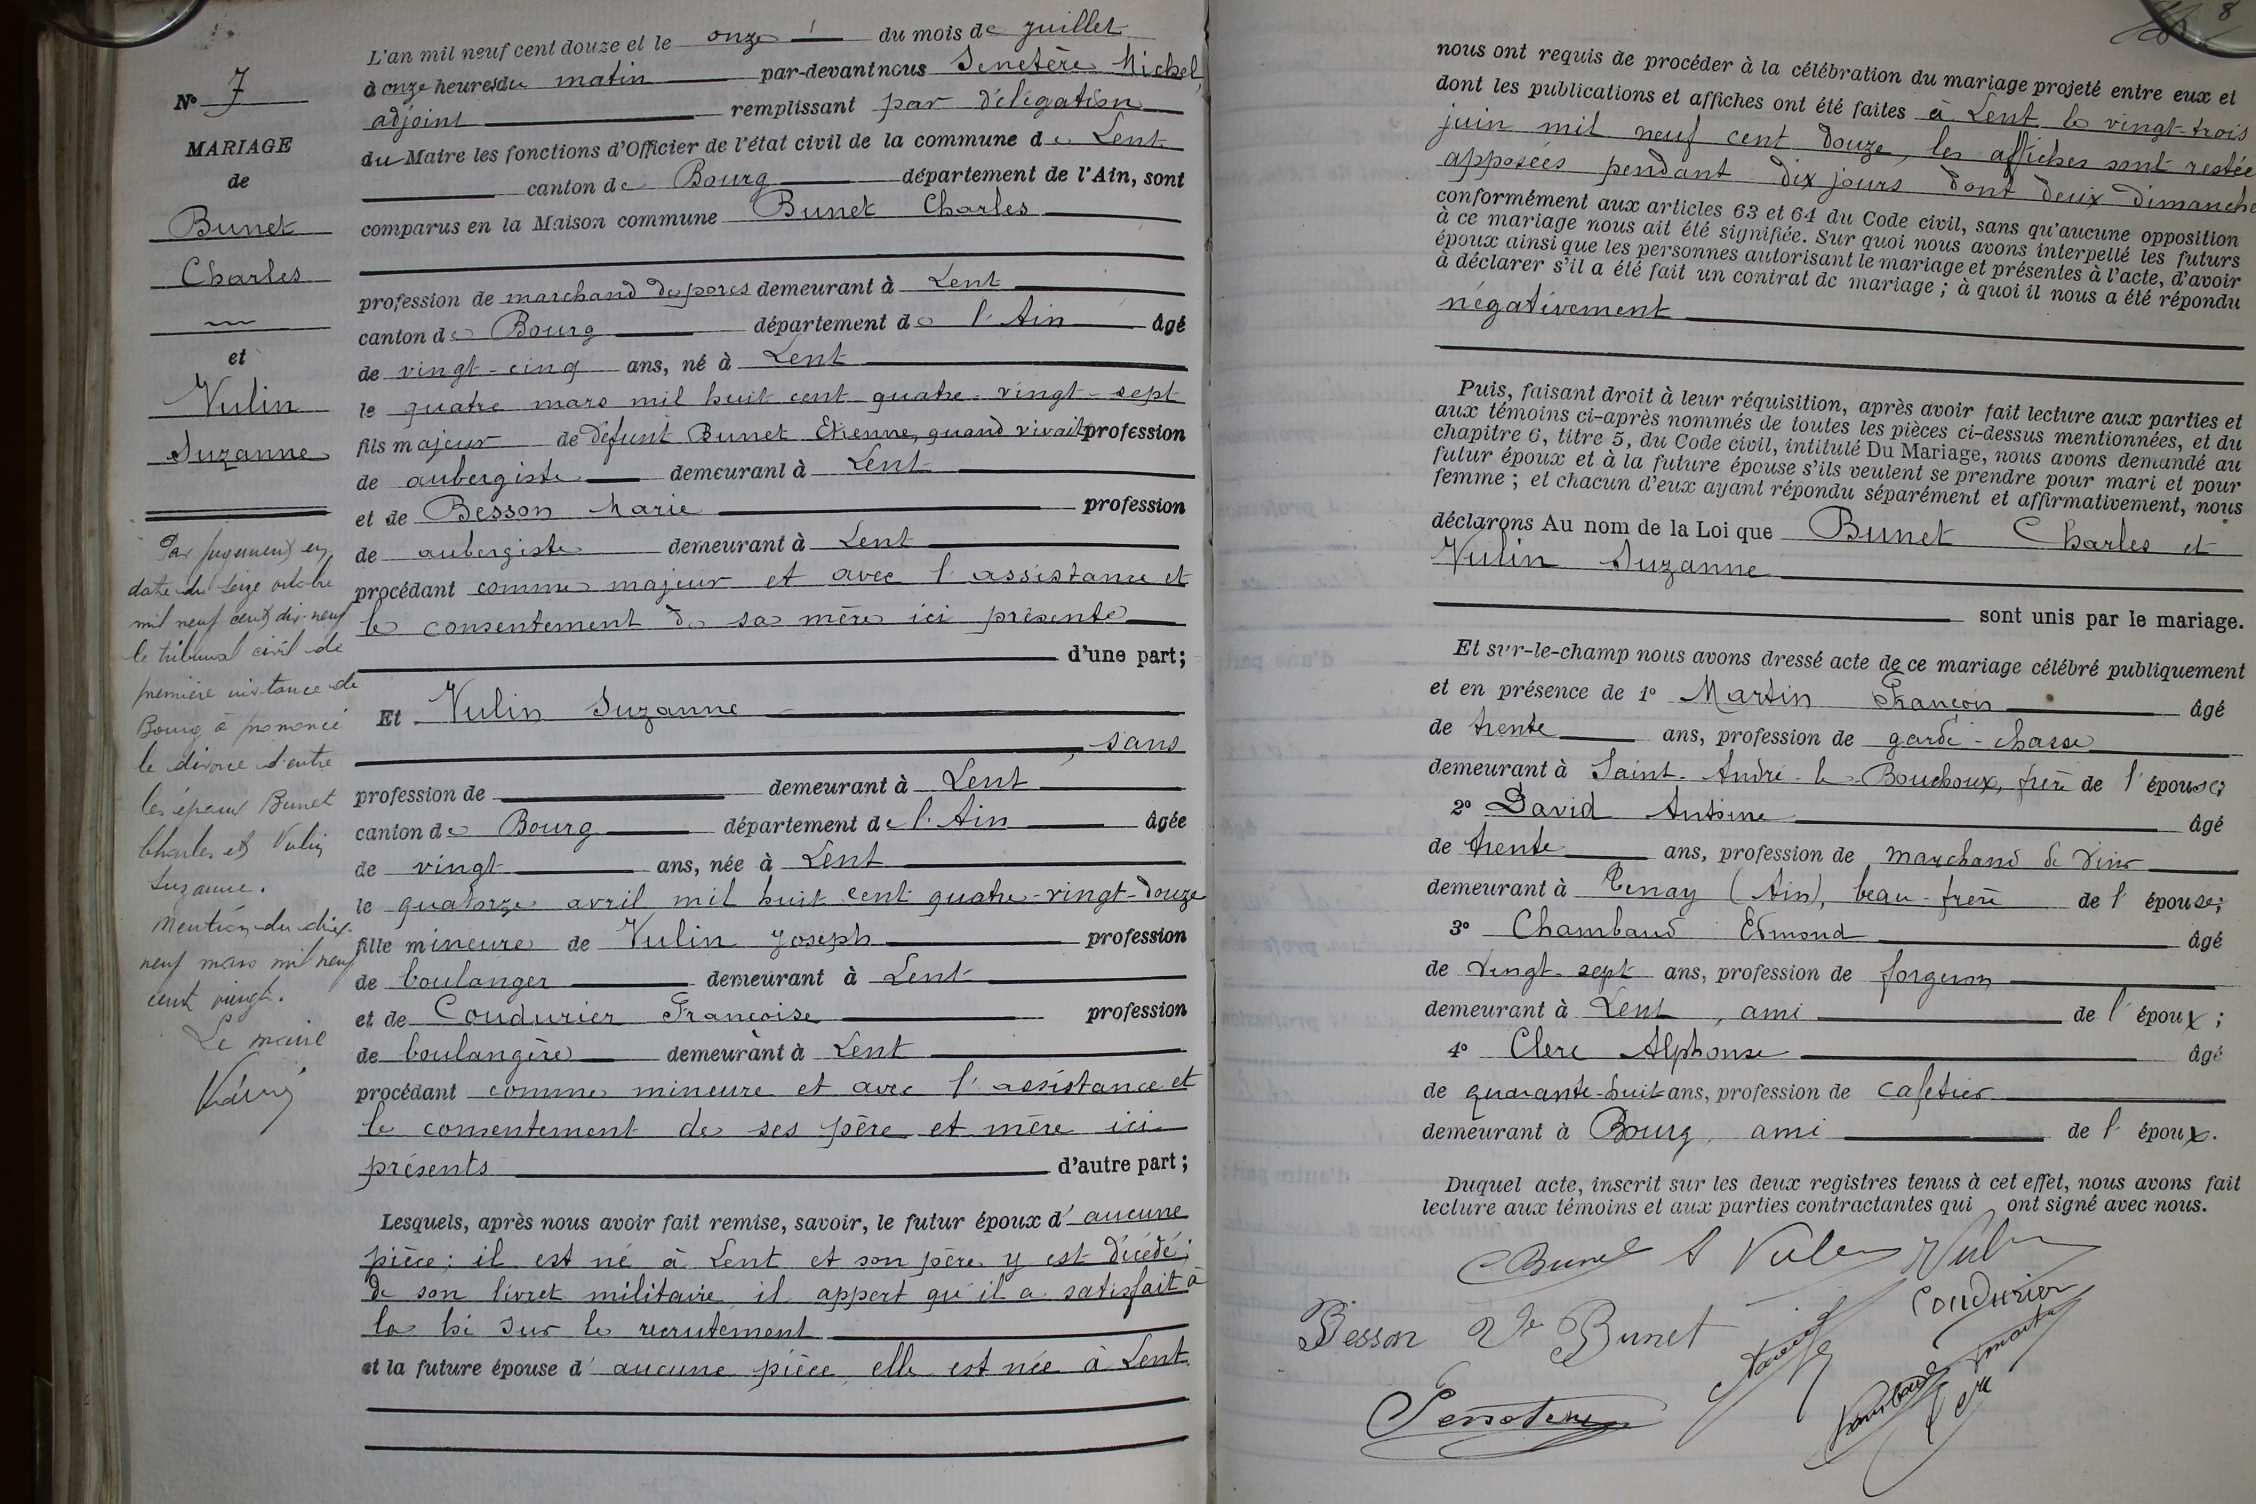 N° 7
MARIAGE
de
Bunet
Charles
et
Vulin
Suzanne
Par jugement en
date du seize octobre
mil neuf cent dix-neuf
le tribunal civil de
première instance de
Bourg a prononcé
le divorce d'entre
les époux Bunet
Charles et Vulin
Suzanne.
Mention du dix-
neuf mars mil neuf
cent vingt.
Le maire
L'an mil neuf cent douze et le onze du mois de juillet
à onze heures du matin par-devant nous Senetère Michel,
adjoint remplissant par délégation
du Maire les fonctions d'Officier de l'état civil de la commune de Lent
canton de Bourg département de l'Ain, sont
comparus en la Maison commune Bunet Charles
profession de marchand de porcs demeurant à Lent
canton de Bourg département de l'Ain âgé
de vingt-cinq ans, né à Lent
le quatre mars mil huit cent quatre-vingt-sept
fils majeur de défunt Bunet Etienne, quand vivait profession
de aubergiste demeurant à Lent
et de Besson Marie profession
de aubergiste demeurant à Lent
procédant comme majeur et avec l'assistance et
le consentement de sa mère ici présente
d'une part;
Et Vulin Suzanne
, sans
profession de demeurant à Lent
canton de Bourg département de l'Ain âgée
de vingt ans, née à Lent
le quatorze avril mil huit cent quatre-vingt-douze
fille mineure de Vulin Joseph profession
de boulanger demeurant à Lent
et de Coudurier Françoise profession
de boulangère demeurant à Lent
procédant comme mineure et avec l'assistance et
le consentement de ses père et mère ici
présents d'autre part;
Lesquels, après nous avoir fait remise, savoir, le futur époux d'aucune
pièce; il est né à Lent et son père y est décédé;
de son livret militaire il appert qu'il a satisfait à
la loi sur le recrutement
et la future épouse d'aucune pièce, elle est née à Lent.
8
nous ont requis de procéder à la célébration du mariage projeté entre eux et
dont les publications et affiches ont été faites à Lent le vingt-trois
juin mil neuf cent douze, les affiches sont restée
apposées pendant dix jours dont deux dimanche
conformément aux articles 63 et 64 du Code civil, sans qu'aucune opposition
à ce mariage nous ait été signifiée. Sur quoi nous avons interpellé les futurs
époux ainsi que les personnes autorisant le mariage et présentes à l'acte, d'avoir
à déclarer s'il a été fait un contrat de mariage; à quoi il nous a été répondu
négativement
Puis, faisant droit à leur réquisition, après avoir fait lecture aux parties et
aux témoins ci-après nommés de toutes les pièces ci-dessus mentionnées, et du
chapitre 6, titre 5, du Code civil, intitulé Du Mariage, nous avons demandé au
futur époux et à la future épouse s'ils veulent se prendre pour mari et pour
femme; et chacun d'eux ayant répondu séparément et affirmativement, nous
déclarons Au nom de la Loi que Bunet Charles et
Vulin Suzanne
sont unis par le mariage.
Et sur-le-champ nous avons dressé acte de ce mariage célébré publiquement
et en présence de 1° Martin François âgé
de trente ans, profession de garde-chasse
demeurant à Saint-André-le-Bouchoux, frère de l'épouse;
2° David Antoine âgé
de trente ans, profession de marchand de vins
demeurant à Tenay (Ain), beau-frère de l'épouse;
3° Chambaud Edmond âgé
de vingt-sept ans, profession de forgeron
demeurant à Lent, ami de l'époux;
4° Clerc Alphonse âgé
de quarante-huit ans, profession de cafetier
demeurant à Bourg, ami de l'époux.
Duquel acte, inscrit sur les deux registres tenus à cet effet, nous avons fait
lecture aux témoins et aux parties contractantes qui ont signé avec nous.
C Bunet S Vulin Vulin
Coudurier
Besson Vve Bunet
David Martin
Senetère Chambaud Clerc